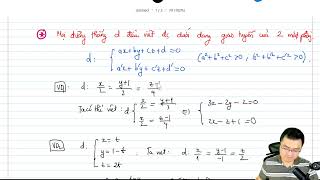 Mọi đường thẳng d đều viết đc dưới dạng giao tuyến của 2 mặt phẳng
d: { ax+by+cz+d=0
a'x+b'y+c'z+d'=0 (a²+b²+c²>0, a'²+b'²+c'²>0).
VD1 d: x/2 = (y+1)/3 = (z-1)/4
Ta có thể viết: d { x/2 = (y+1)/3
x/2 = (z-1)/4
⇔ { 3x-2y-2=0
2x-z+1=0
VD2 d: { x=t
y=1-t
z=2t
Ta viết: d: x/1 = (y-1)/-1 = z/2